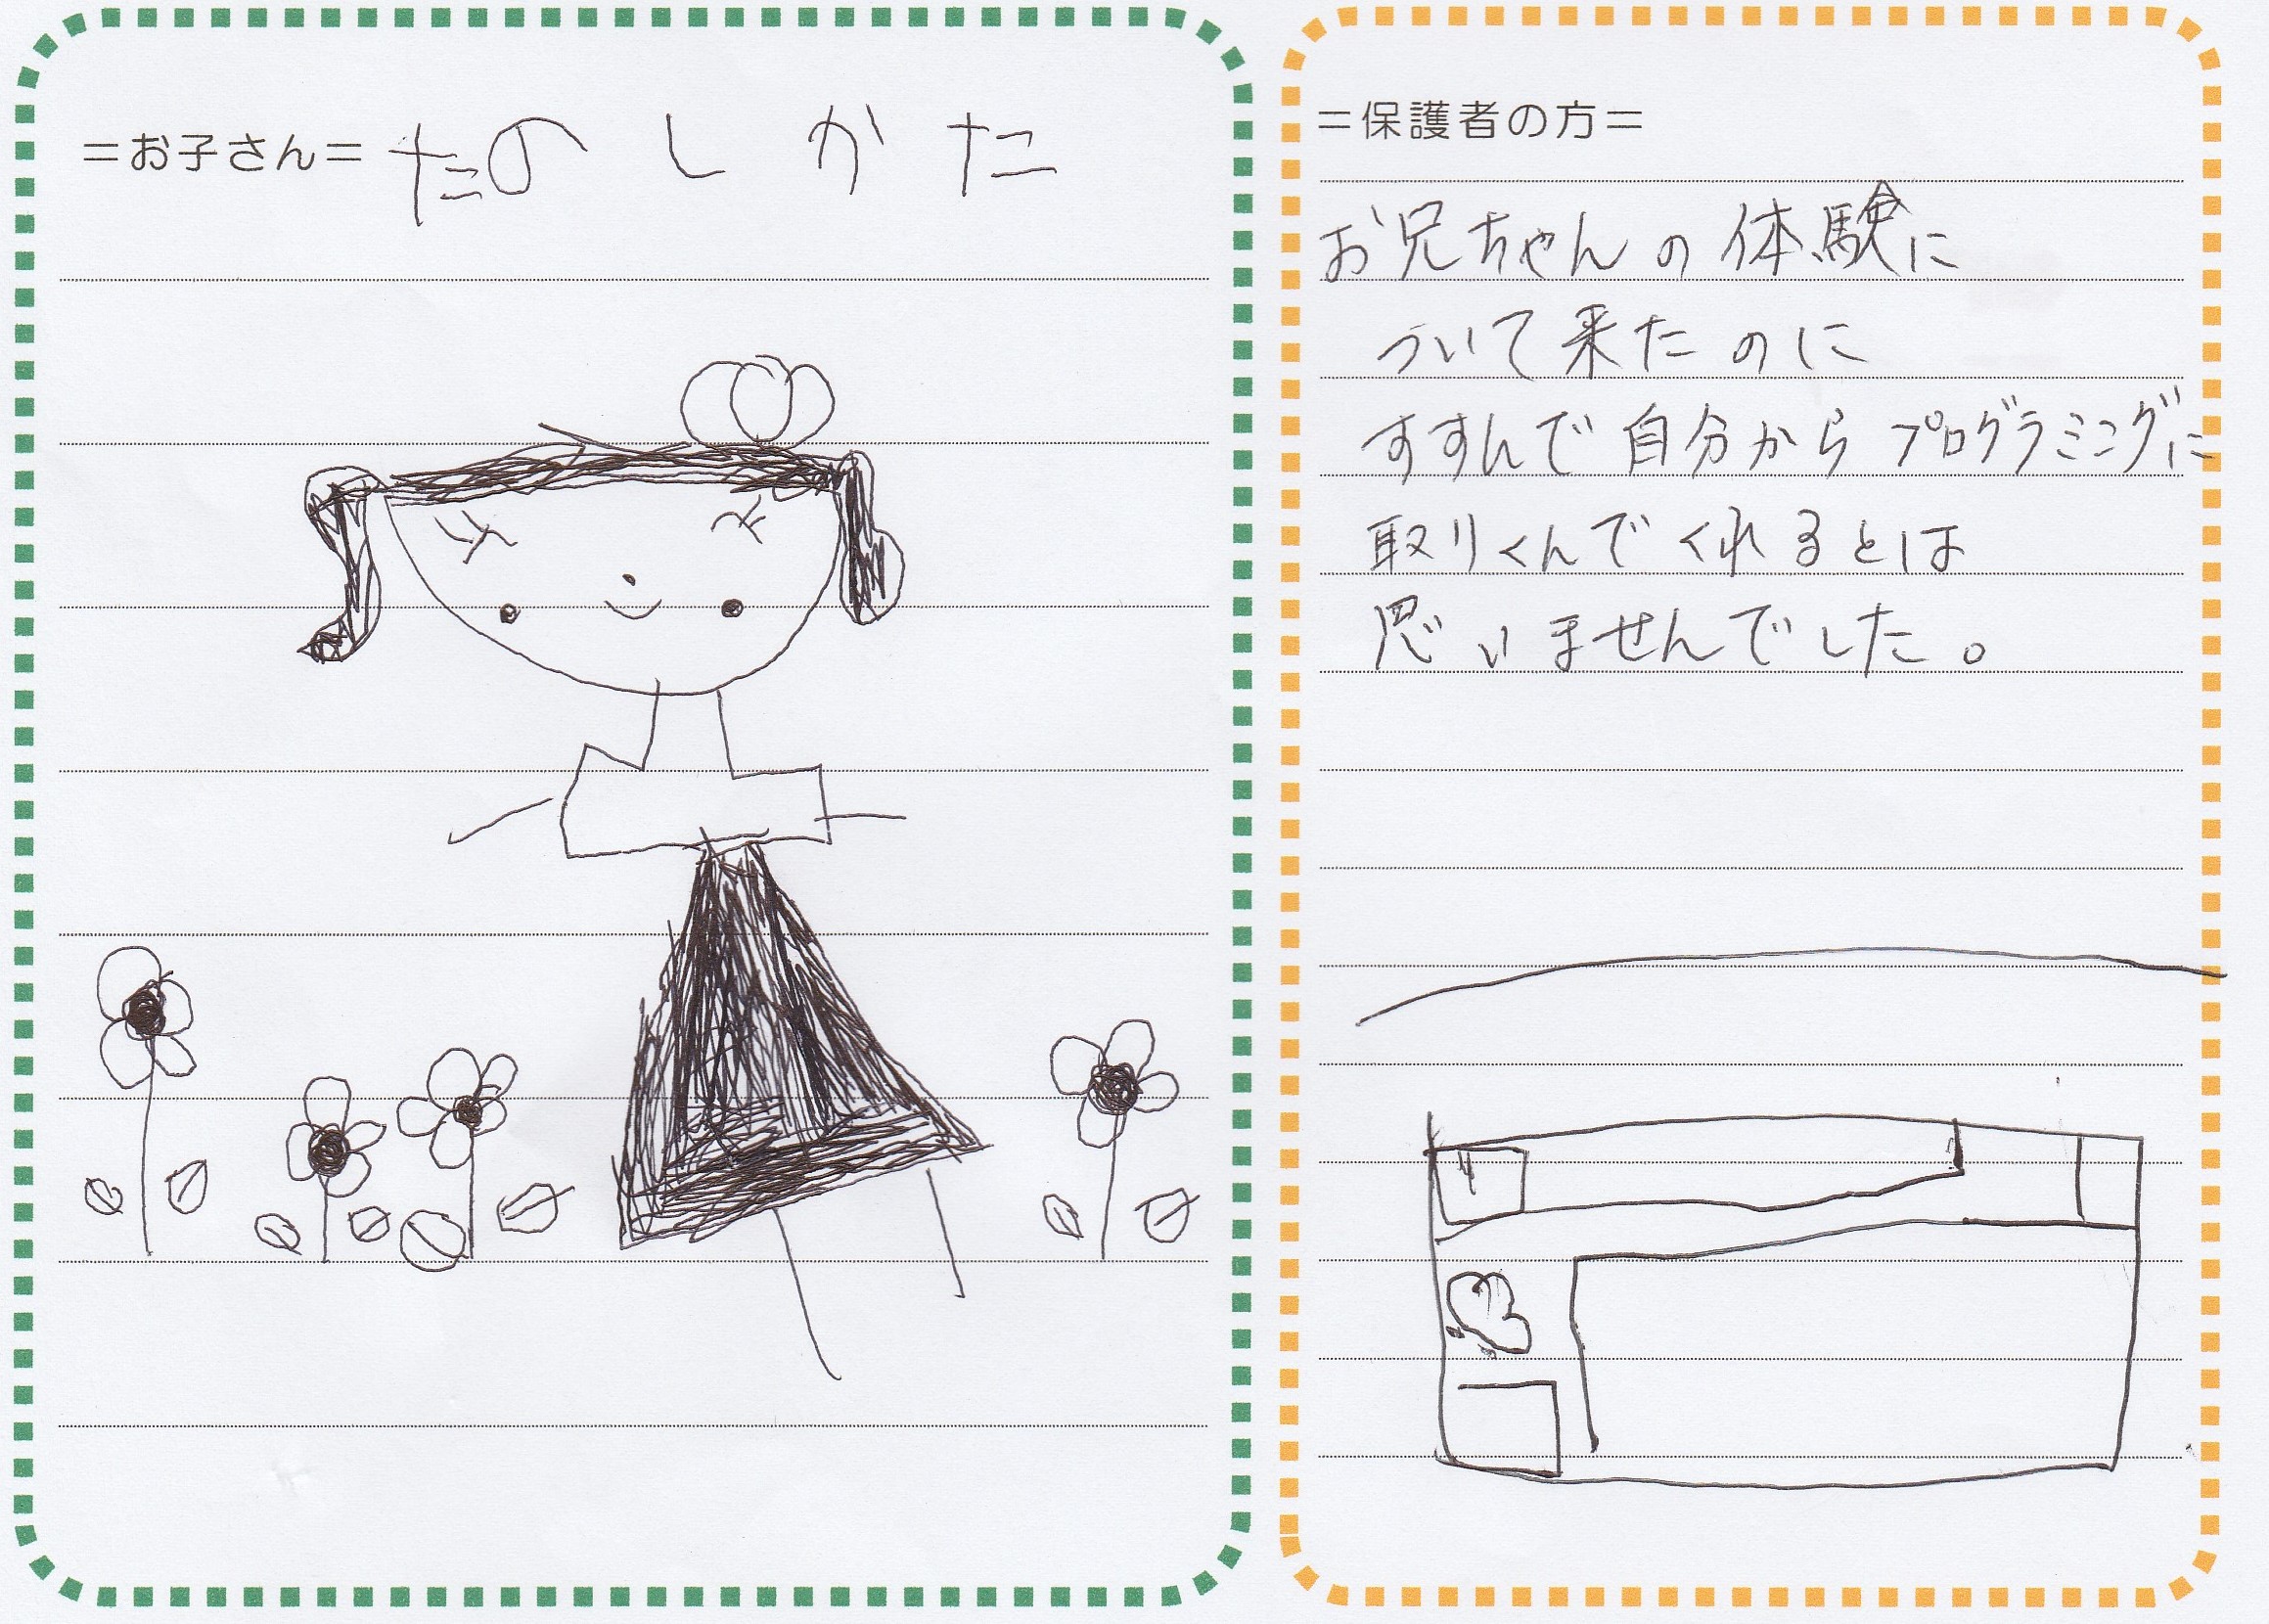 =お子さん= たのしかた
=保護者の方=
お兄ちゃんの体験に
ついて来たのに
すすんで自分からプログラミングに
取りくんでくれるとは
思いませんでした。